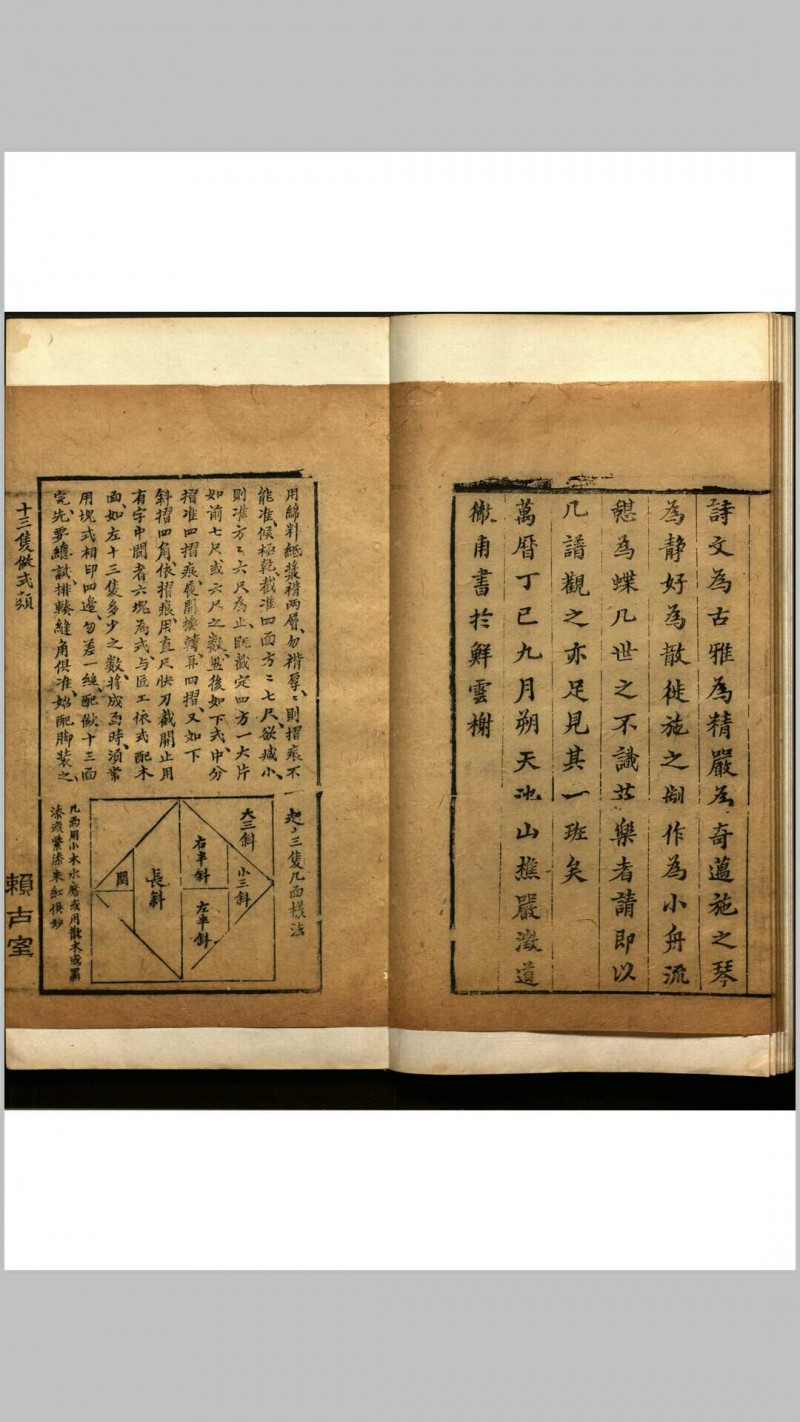 詩文為古雅為精嚴為奇邁施之琴
為静好為散徙施之剏作為小舟流
憇為蝶几世之不識其樂者請即以
几譜觀之亦足見其一班矣
萬曆丁巳九月朔天池山樵嚴澂道
澈甫書於鮮雲榭
用綿料紙漿褙兩層勿褙厚〻則摺痕不
能准候極乾截准四面方〻七尺欲減小
則准方〻六尺為止既截定四方一大片
如前七尺或六尺之數然後如下式中分
摺准四摺痕展開換轉再四摺又如下
斜摺四角依摺痕用直尺快刀截開止用
有字中間者六塊為式与匠工依式配木
面如左十三隻多少之數将成面時湏常
用塊式相印四邊勿差一絲配做十三面
完先要總試排輳縫角俱准始配脚裝之
起十三隻几面樣法
大三斜
小三斜
右半斜
左半斜
長斜
閨
几面用小木水磨或用散木或黑
漆或紫漆朱紅俱妙
十三隻做式類
賴古室